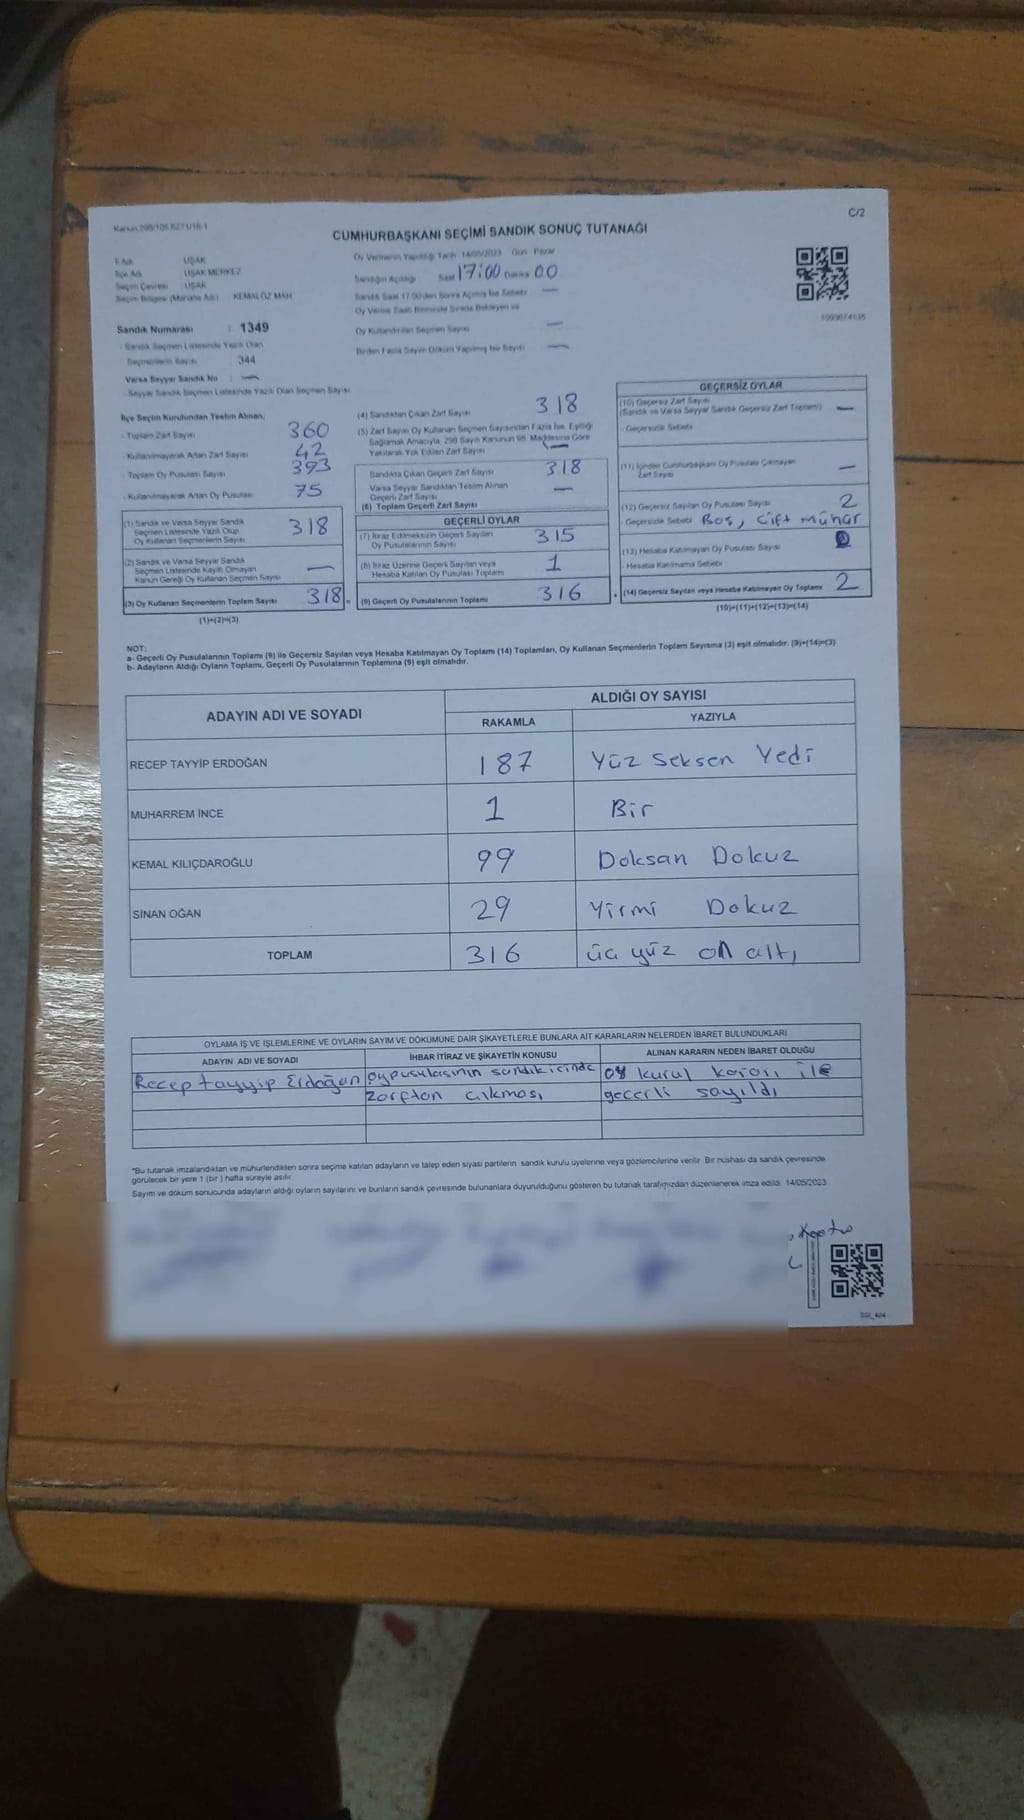 C/2
CUMHURBAŞKANI SEÇİMİ SANDIK SONUÇ TUTANAĞI
İli Adı UŞAK
İlçe Adı UŞAK MERKEZ
Seçim Çevresi : UŞAK
Seçim Bölgesi (Mahalle Adı) : KEMALÖZ MAH
Sandık Numarası : 1349
- Sandık Seçmen Listesinde Yazılı Olan
Seçmenlerin Sayısı : 344
Varsa Seyyar Sandık No : —
- Seyyar Sandık Seçmen Listesinde Yazılı Olan Seçmen Sayısı
Oy Vermenin Yapıldığı Tarih 14/05/2023 Gün Pazar
Sandığın Açıldığı Saat 17:00 Dakika 00
Sandık Saat 17.00'den Sonra Açılmış İse Sebebi —
Oy Verme Saati Bitiminde Sırada Bekleyen ve
Oy Kullandırılan Seçmen Sayısı —
Birden Fazla Sayım Döküm Yapılmış İse Sayısı —
İlçe Seçim Kurulundan Teslim Alınan;
- Toplam Zarf Sayısı 360
- Kullanılmayarak Artan Zarf Sayısı 42
- Toplam Oy Pusulası Sayısı 393
- Kullanılmayarak Artan Oy Pusulası 75
(1) Sandık ve Varsa Seyyar Sandık
Seçmen Listesinde Yazılı Olup
Oy Kullanan Seçmenlerin Sayısı 318
(2) Sandık ve Varsa Seyyar Sandık
Seçmen Listesinde Kayıtlı Olmayan
Kanun Gereği Oy Kullanan Seçmen Sayısı —
(3) Oy Kullanan Seçmenlerin Toplam Sayısı 318
(1)+(2)=(3)
(4) Sandıktan Çıkan Zarf Sayısı 318
(5) Zarf Sayısı Oy Kullanan Seçmen Sayısından Fazla İse, Eşitliği
Sağlamak Amacıyla, 298 Sayılı Kanunun 98. Maddesine Göre
Yakılarak Yok Edilen Zarf Sayısı —
Sandıkta Çıkan Geçerli Zarf Sayısı 318
Varsa Seyyar Sandıktan Teslim Alınan
Geçerli Zarf Sayısı —
(6) Toplam Geçerli Zarf Sayısı
GEÇERLİ OYLAR
(7) İtiraz Edilmeksizin Geçerli Sayılan
Oy Pusulalarının Sayısı 315
(8) İtiraz Üzerine Geçerli Sayılan veya
Hesaba Katılan Oy Pusulası Toplamı 1
(9) Geçerli Oy Pusulalarının Toplamı 316
GEÇERSİZ OYLAR
(10) Geçersiz Zarf Sayısı
(Sandık ve Varsa Seyyar Sandık Geçersiz Zarf Toplamı) —
- Geçersizlik Sebebi
(11) İçinden Cumhurbaşkanı Oy Pusulası Çıkmayan
Zarf Sayısı —
(12) Geçersiz Sayılan Oy Pusulası Sayısı 2
- Geçersizlik Sebebi Boş, Çift mühür
(13) Hesaba Katılmayan Oy Pusulası Sayısı
- Hesaba Katılmama Sebebi
(14) Geçersiz Sayılan veya Hesaba Katılmayan Oy Toplamı 2
(10)+(11)+(12)+(13)=(14)
NOT:
a- Geçerli Oy Pusulalarının Toplamı (9) ile Geçersiz Sayılan veya Hesaba Katılmayan Oy Toplamı (14) Toplamları, Oy Kullanan Seçmenlerin Toplam Sayısına (3) eşit olmalıdır. (9)+(14)=(3)
b- Adayların Aldığı Oyların Toplamı, Geçerli Oy Pusulalarının Toplamına (9) eşit olmalıdır.
ADAYIN ADI VE SOYADI ALDIĞI OY SAYISI
RAKAMLA YAZIYLA
RECEP TAYYİP ERDOĞAN 187 Yüz Seksen Yedi
MUHARREM İNCE 1 Bir
KEMAL KILIÇDAROĞLU 99 Doksan Dokuz
SİNAN OĞAN 29 Yirmi Dokuz
TOPLAM 316 üç yüz on altı
OYLAMA İŞ VE İŞLEMLERİNE VE OYLARIN SAYIM VE DÖKÜMÜNE DAİR ŞİKAYETLERLE BUNLARA AİT KARARLARIN NELERDEN İBARET BULUNDUKLARI
ADAYIN ADI VE SOYADI İHBAR İTİRAZ VE ŞİKAYETİN KONUSU ALINAN KARARIN NEDEN İBARET OLDUĞU
Recep tayyip Erdoğan oy pusulasının sandık içinde oy kurul kararı ile
zarftan çıkması geçerli sayıldı
*Bu tutanak imzalandıktan ve mühürlendikten sonra seçime katılan adayların ve talep eden siyasi partilerin sandık kurulu üyelerine veya gözlemcilerine verilir. Bir nüshası da sandık çevresinde
görülecek bir yere 1 (bir) hafta süreyle asılır.
Sayım ve döküm sonucunda adayların aldığı oyların sayılarını ve bunların sandık çevresinde bulunanlara duyurulduğunu gösteren bu tutanak tarafımızdan düzenlenerek imza edildi. 14/05/2023